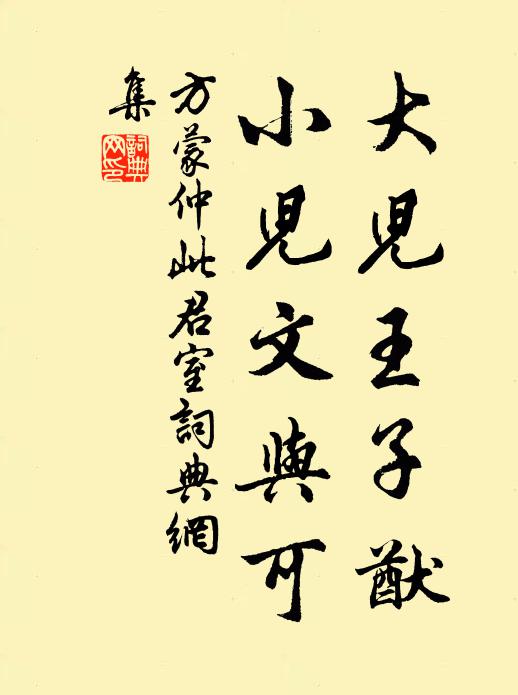 大兒王子猷
小兒文與可
方蒙仲此君室詞典網
集
詞典網印